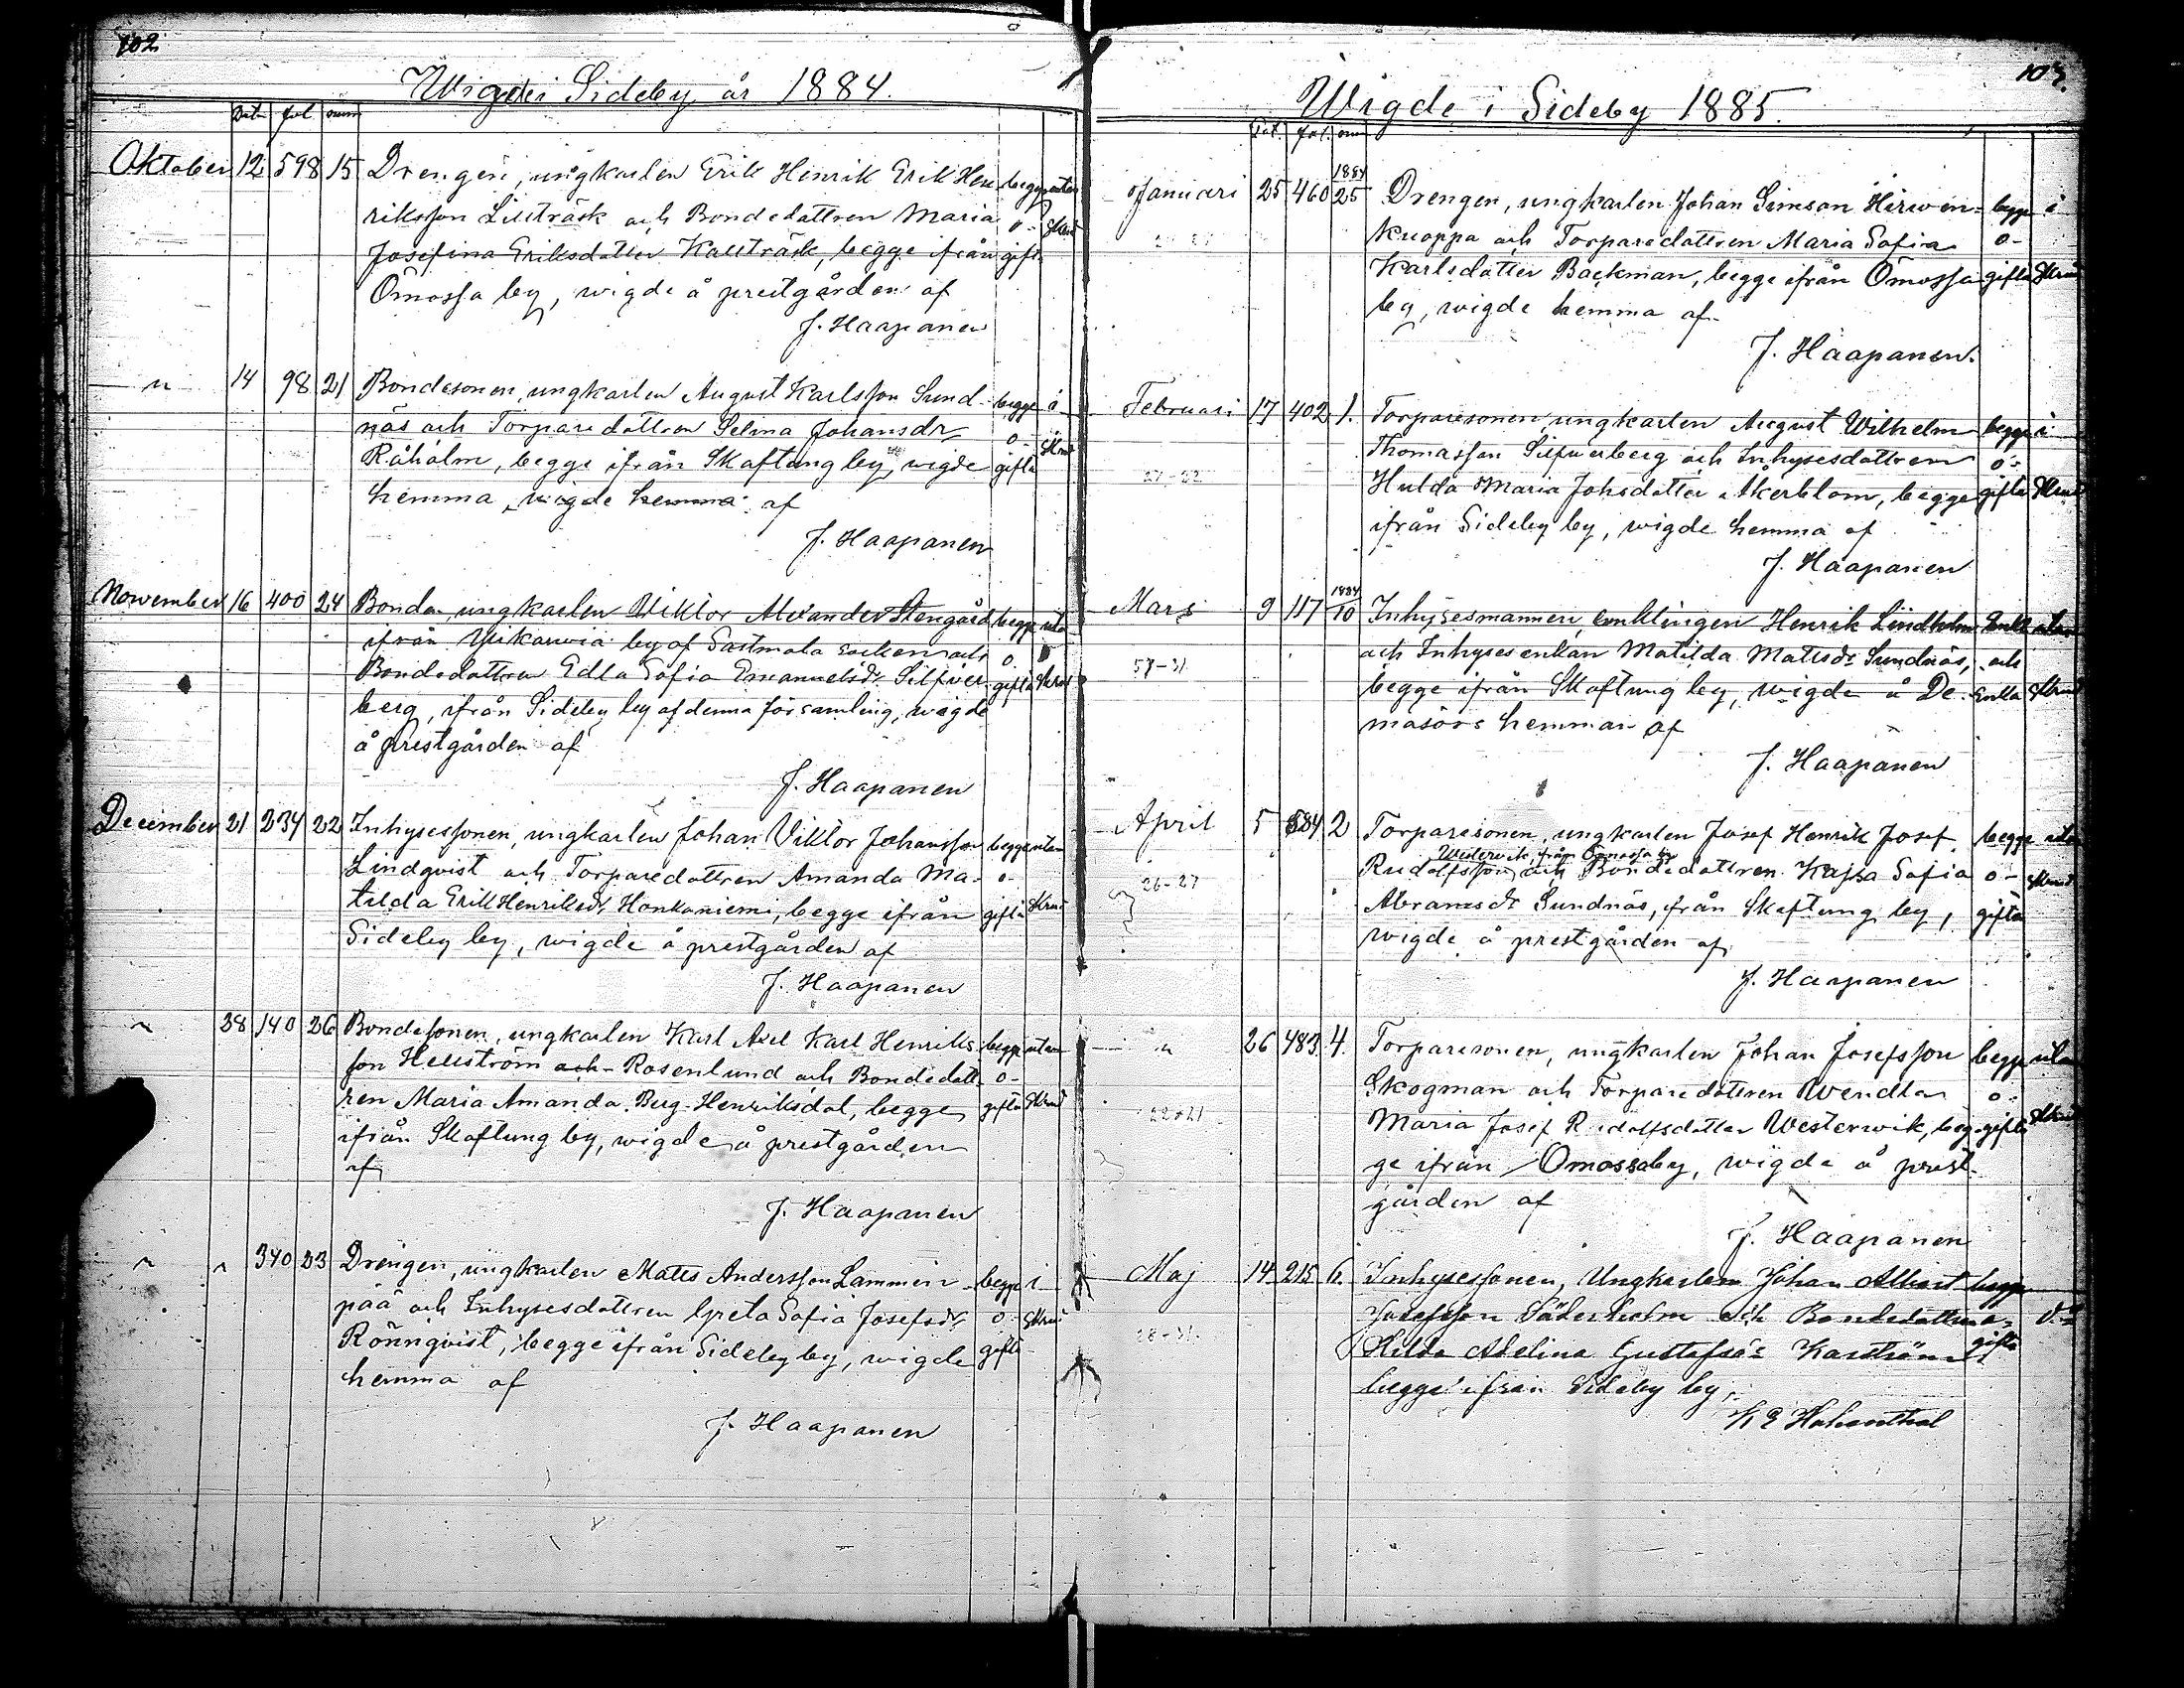 102
Wigde i Sideby år 1884.
Dat. fol. num
Oktober 12 598 15 Drengen, ungkarlen Erik Henrik Erik Hen- begge utan
riksson Lillträsk och Bondedottren Maria o- Skrud
Josefina Eriksdotter Kallträsk, begge ifrån gifta
Ömossa by, wigde å prestgården af
J. Haapanen
" 14 98 21 Bondesonen, ungkarlen August Karlsson Sund- begge i
näs och Torparedottren Selma Johansdr o- Skrud
Råholm, begge ifrån Skaftung by, wigde gifta
hemma, wigde hemma af
J. Haapanen
November 16 400 24 Bonden, ungkarlen Viktor Alexander Stengård begge utan
ifrån by af Sastmola socken och o-
Bondedottren Edla Sofia Emanuelsdr Silfver- gifta Skrud
berg, ifrån Sideby by af denna församling, wigde
å prestgården af
J. Haapanen
December 21 234 22 Inhysessonen, ungkarlen Johan Viktor Johansson begge utan
Lindqvist och Torparedottren Amanda Ma- o-
tilda Erik Henriksdr Honkaniemi, begge ifrån gifta Skrud
Sideby by, wigde å prestgården af
J. Haapanen
" 28 140 26 Bondesonen, ungkarlen Karl Axel Karl Henriks- begge utan
son Hellström och Rosenlund och Bondedott- o-
ren Maria Amanda Berg-Henriksdal, begge gifta Skrud
ifrån Skaftung by, wigde å prestgården
af
J. Haapanen
" " 340 23 Drengen, ungkarlen Matts Andersson Lammin- begge i
pää och Inhysesdottren Greta Sofia Josefsdr o- Skrud
Rönnqvist, begge ifrån Sideby by, wigde gifta
hemma af
J. Haapanen
103.
Wigde i Sideby 1885.
Dat. fol. num
1884
Januari 25 460 25 Drengen, ungkarlen Johan Simson Hirwen- begge i
kuoppa och Torparedottren Maria Sofia o-
Karlsdotter Backman, begge ifrån Ömossa gifta Skrud
by, wigde hemma af
J. Haapanen.
Februari 17 402 1. Torparesonen, ungkarlen August Wilhelm begge i
Thomasson Silfwerberg och Inhysesdottren o-
27-22 Hulda Maria Johsdotter Åkerblom, begge gifta Skrud
ifrån Sideby by, wigde hemma af
J. Haapanen
1884
Mars 9 117 10 Inhysesmannen, enklingen Henrik Lindholm Enkl. utan
57-31 och Inhysesenkan Matilda Mattsdr Sundnäs, och
begge ifrån Skaftung by, wigde å De- Enka Skrud
masörs hemman af
J. Haapanen
April 5 584 2 Torparesonen, ungkarlen Josef Henrik Josef begge utan
Westerwik, från Ömossa by
26-27 Rudolfsson och Bondedottren Kajsa Sofia o- Skrud
Abramsdr Sundnäs, ifrån Skaftung by, gifta
wigde å prestgården af
J. Haapanen
" 26 483 4. Torparesonen, ungkarlen Johan Josefsson begge utan
Skogman och Torparedottren Wendla o-
22-21 Maria Josef Rudolfsdotter Westerwik, beg- gifta Skrud
ge ifrån Ömossaby, wigde å prest-
gården af
J. Haapanen
Maj 14 215 6. Inhysessonen, Ungkarlen Johan Albert begge
Josefsson Söderholm och Bondedottren o-
28-31. Hilda Adelina Gustafsdr gifta
begge ifrån Sideby by,
K E Hohenthal